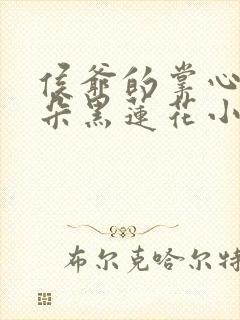 侯爷的掌心
朵黑莲花小
布尔克哈尔特